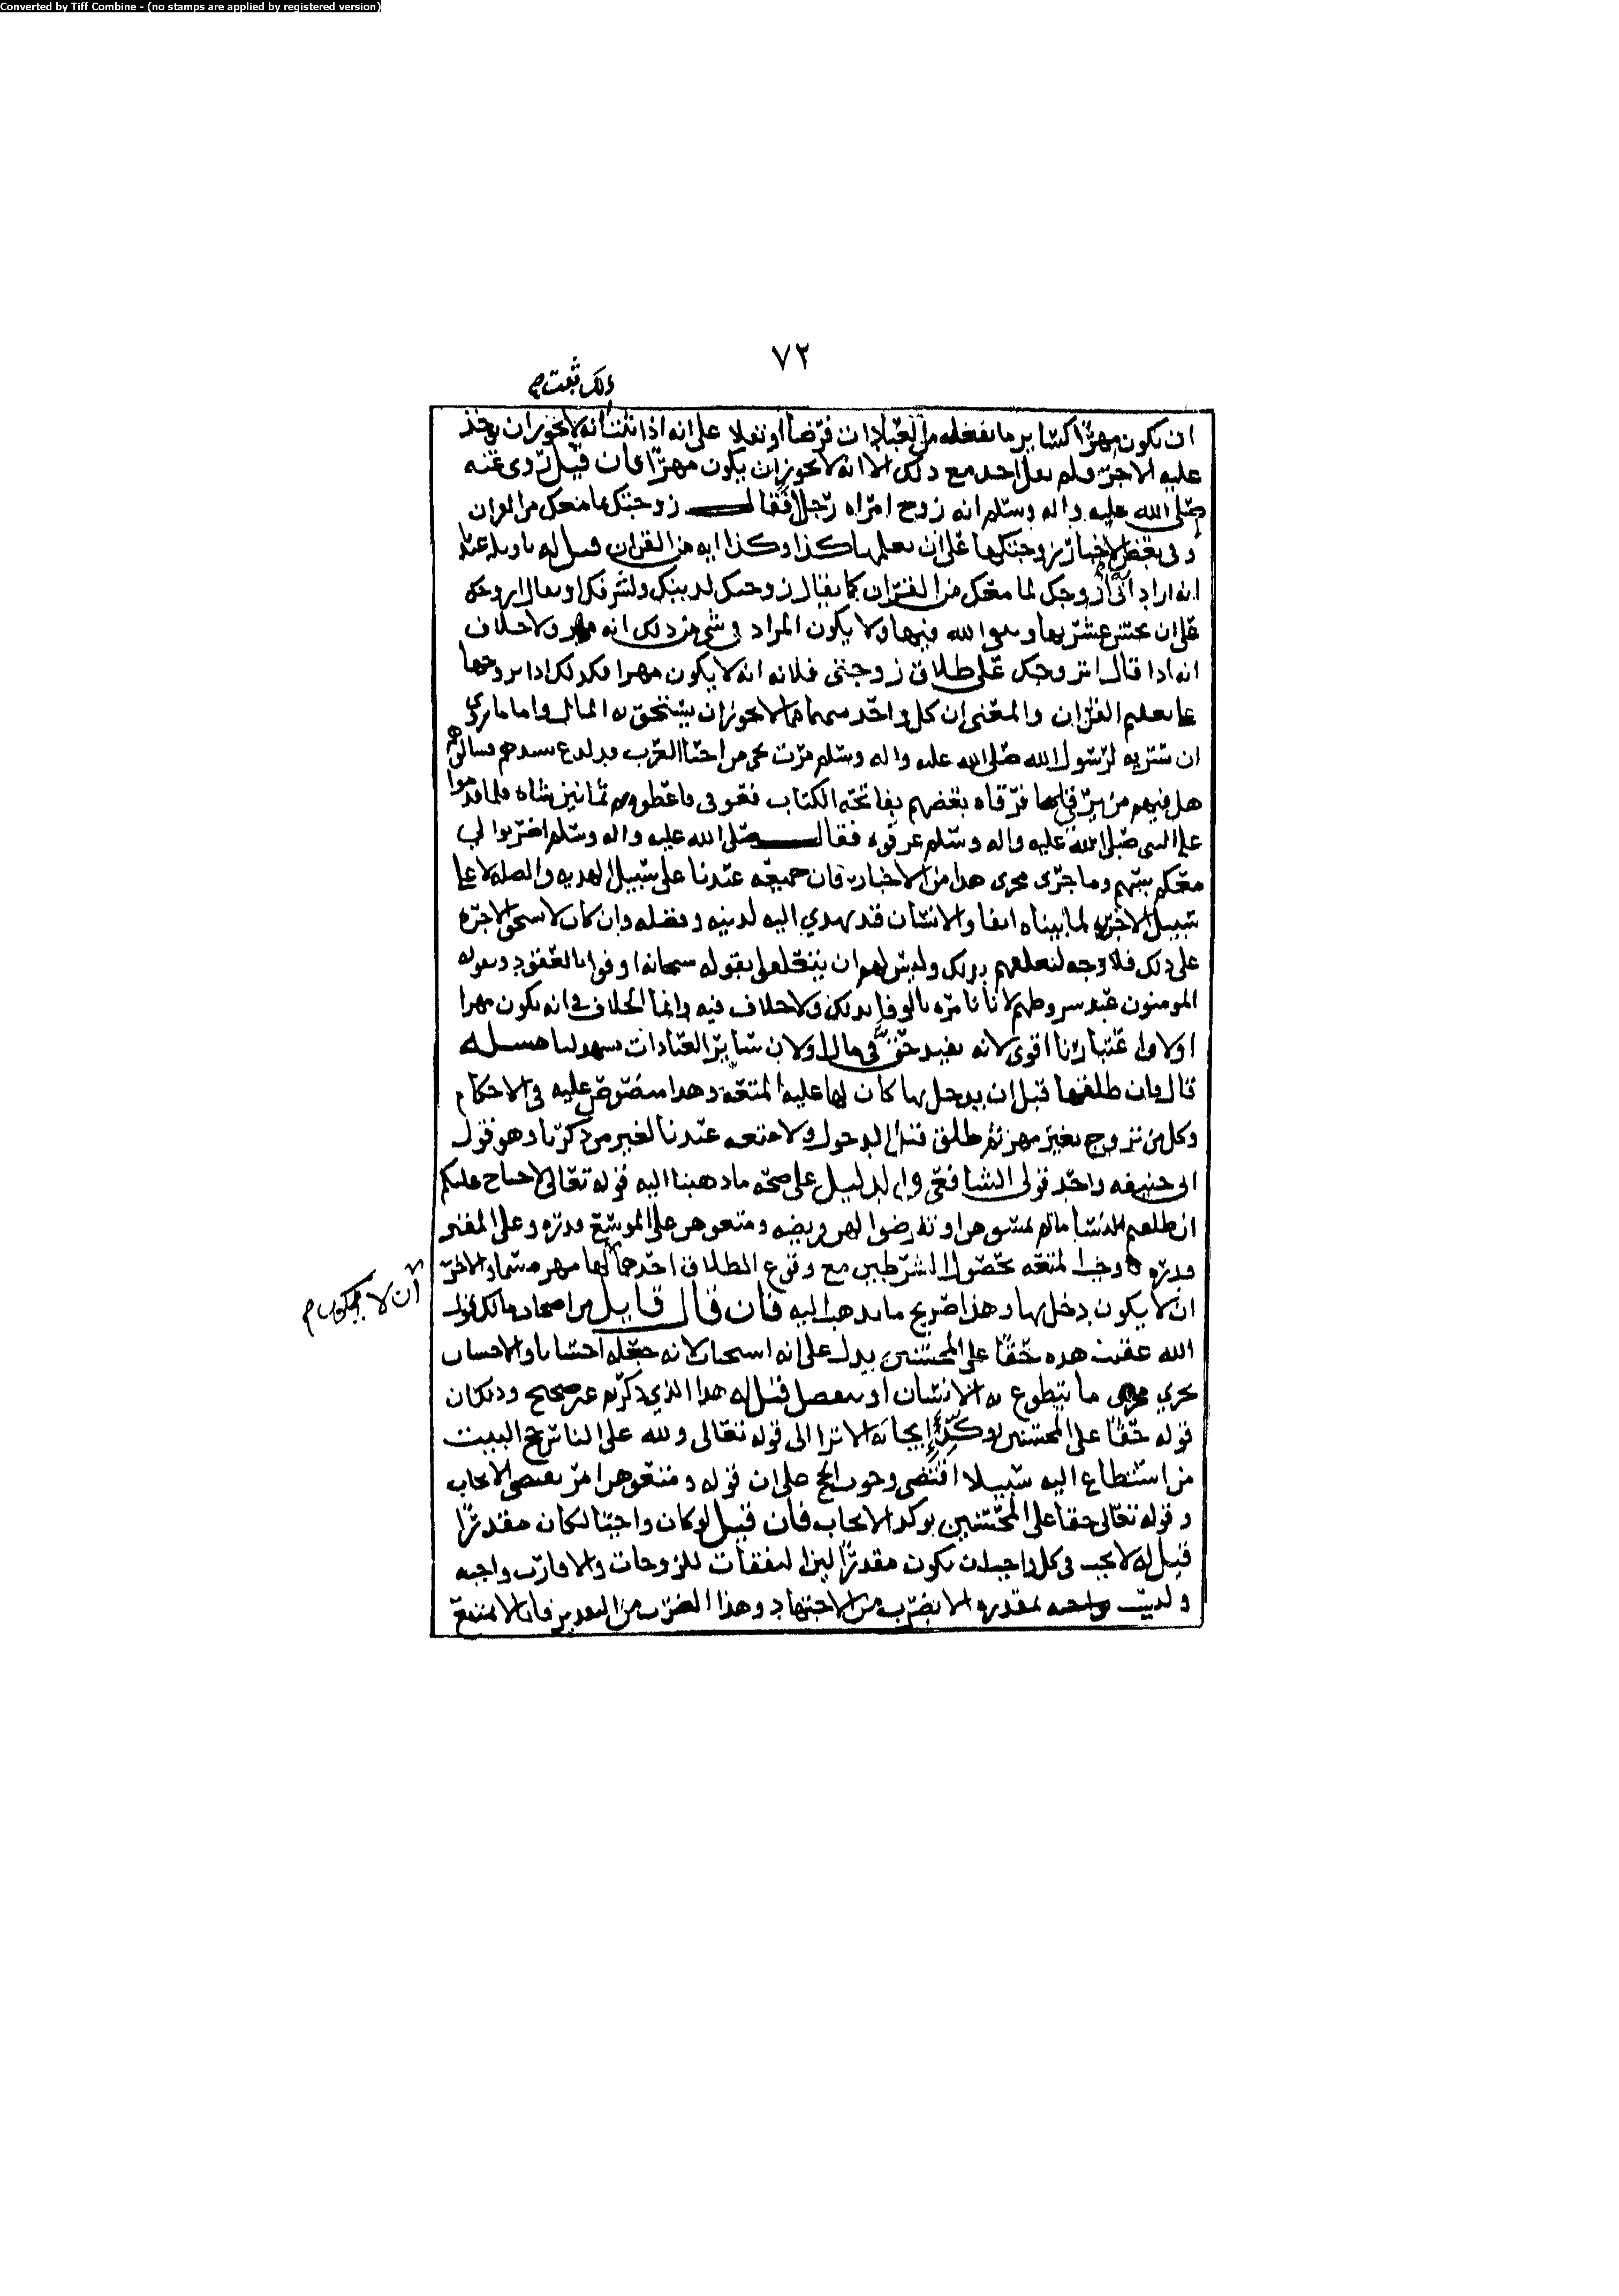 Converted by Tiff Combine - (no stamps are applied by registered version)
٧٢
ذلك ثبت م
ان يكون مهرا كسائر ما يفعله من العبادات فرضا او نفلا على انه اذا ثبت انه لا يجوز ان يوخذ
عليه الاجره فلم يقل احد مع ذلك الا انه لا يجوز ان يكون مهرا فان قيل روى عنه
صلى الله عليه واله وسلم انه زوج امراه رجلا فقال زوجتكها بما معك من القران
وفي بعض الاخبار زوجتكها على ان تعلمها كذا وكذا ايه من القران قيل له تاويله عندنا
انه اراد اني ازوجك لما معك من القران كما يقال زوجتك لدينك ولشرفك او يقال ازوجك
على ان تحسن عشرتها وتتقي الله فيها ولا يكون المراد في شي من ذلك انه مهر ولا خلاف
انه اذا قال اتزوجك على طلاق زوجتي فلانه انه لا يكون مهرا فكذلك اذا تزوجها
على تعليم القران والمعنى ان كل واحد منهما مما لا يجوز ان يستحق به المال واما ما روي
ان سريه لرسول الله صلى الله عليه واله وسلم مرت بحي من احيا العرب قد لدغ سيدهم فسالوهم
هل فيهم من يرقي فرقاه بعضهم بفاتحه الكتاب فعوفي فاعطوه ثمانين شاه فلما قدموا
على النبي صلى الله عليه واله وسلم عرفوه فقال صلى الله عليه واله وسلم اضربوا لي
معكم بسهم وما جرى مجرى هذا من الاخبار فان جميعه عندنا على سبيل الهديه والصله لا على
سبيل الاجره لما بيناه انفا والانسان قد يهدي اليه لدينه وفضله وان كان لا يستحق الاجره
على ذلك فلا وجه لتعلقهم بذلك وليس لهم ان يتعلقوا بقوله سبحانه اوفوا بالعقود وبقوله
المومنون عند شروطهم لانا نامره بالوفا بذلك ولا خلاف فيه وانما الخلاف في انه يكون مهرا
اولا واعتبارنا اقوى لانه يفيد حق في مال ولان سائر العبادات تشهد لنا مسله
قال فان طلقها قبل ان يدخل بها كان لها عليه المتعه وهذا منصوص عليه في الاحكام
وكل من تزوج بغير مهر ثم طلق قبل الدخول ولا متعه عندنا لغير من ذكرنا وهو قول
ابي حنيفه واحد قولي الشافعي والدليل على صحه ما ذهبنا اليه قوله تعالى لا جناح عليكم
ان طلقتم النسا ما لم تمسوهن او تفرضوا لهن فريضه ومتعوهن على الموسع قدره وعلى المقتر
قدره فاوجب المتعه بحصول الشرطين مع وقوع الطلاق احدهما لها مهر مسما والاخر
ان لا يكون م
ان لا يكون دخل بها وهذا صريح ما نذهب اليه فان قال قايل من اصحاب مالك قول
الله عقيب هذه حقا على المحسنين يدل على انه استحباب لانه جعله احسانا والاحسان
يجري مجرى ما يتطوع به الانسان او يتفضل قيل له هذا الذي ذكرتم غير صحيح وذلك ان
قوله حقا على المحسنين يوكد ايجابه الا ترا الى قوله تعالى ولله على الناس حج البيت
من استطاع اليه سبيلا اقتضى وجوب الحج على ان قوله ومتعوهن امر يقتضي الايجاب
وقوله تعالى حقا على المحسنين يوكد الايجاب فان قيل لو كان واجبا لكان مقدرا
قيل له لا يجب في كل واجب ان يكون مقدرا اليس النفقات للزوجات والاقارب واجبه
وليست مقدره الا بضرب من الاجتهاد وهذا الضرب من التقدير فانا لا نمنع